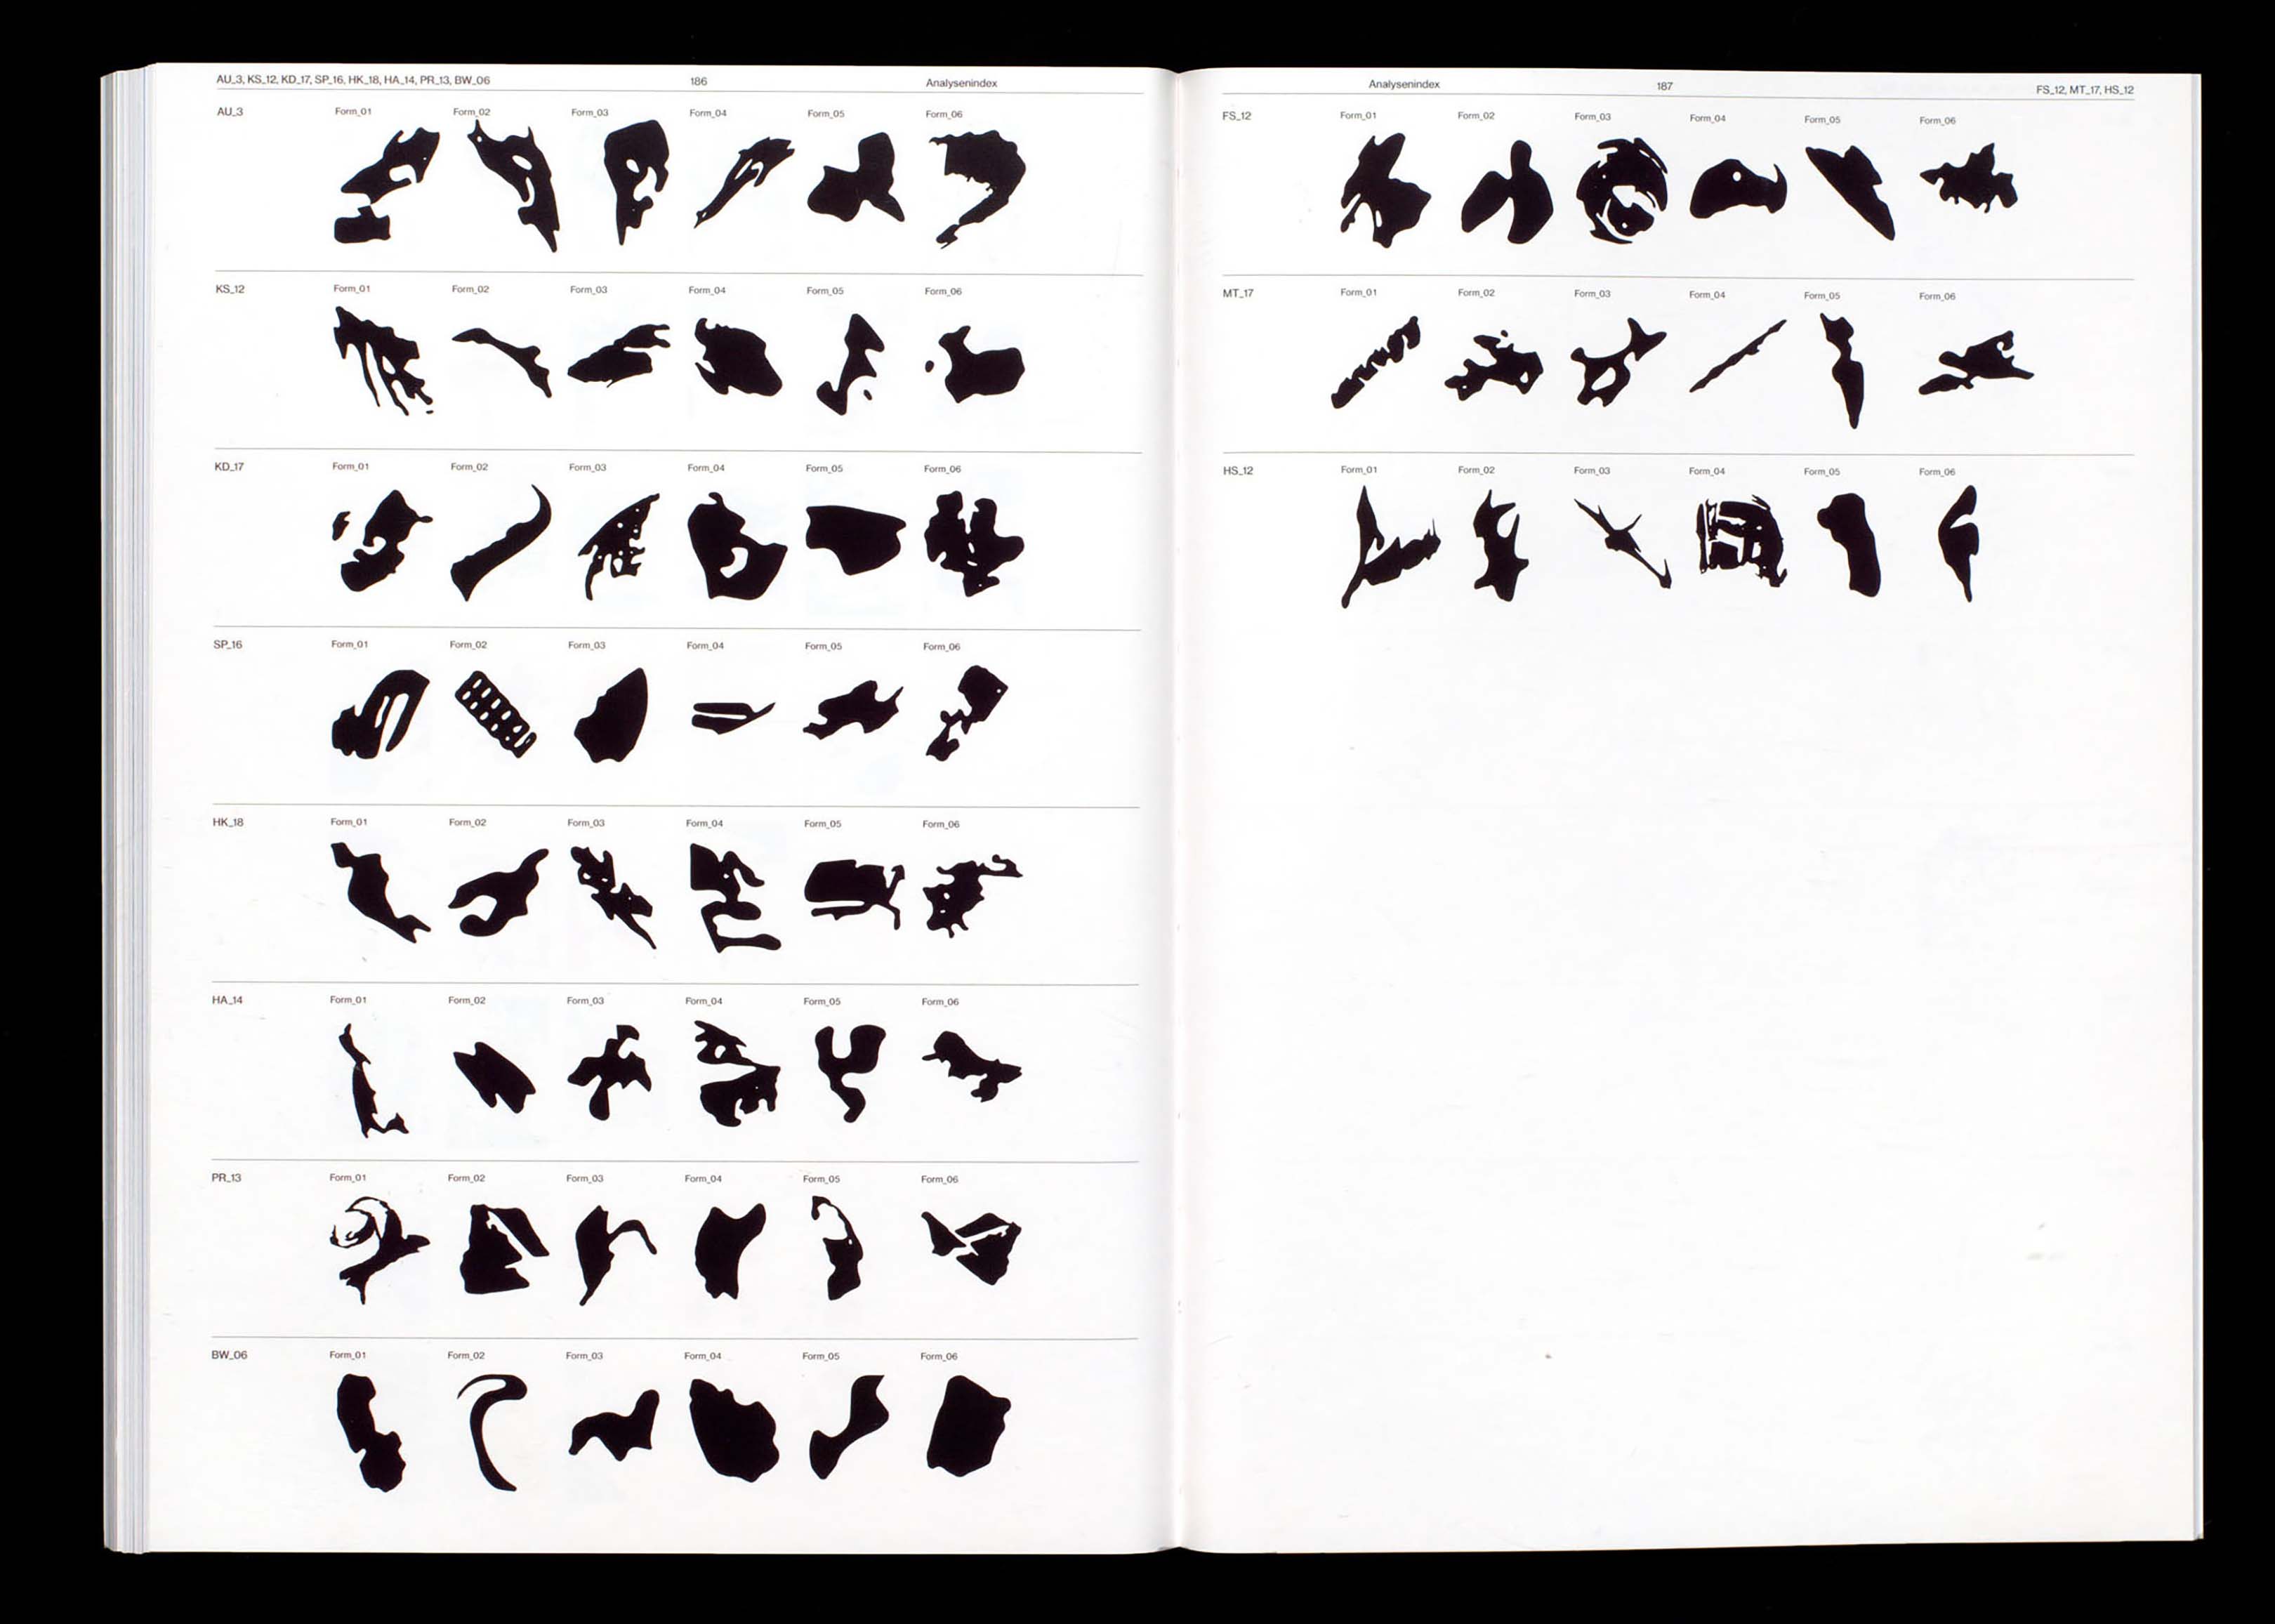 AU_3, KS_12, KD_17, SP_16, HK_18, HA_14, PR_13, BW_06 186 Analysenindex
AU_3 Form_01 Form_02 Form_03 Form_04 Form_05 Form_06
KS_12 Form_01 Form_02 Form_03 Form_04 Form_05 Form_06
KD_17 Form_01 Form_02 Form_03 Form_04 Form_05 Form_06
SP_16 Form_01 Form_02 Form_03 Form_04 Form_05 Form_06
HK_18 Form_01 Form_02 Form_03 Form_04 Form_05 Form_06
HA_14 Form_01 Form_02 Form_03 Form_04 Form_05 Form_06
PR_13 Form_01 Form_02 Form_03 Form_04 Form_05 Form_06
BW_06 Form_01 Form_02 Form_03 Form_04 Form_05 Form_06
Analysenindex 187 FS_12, MT_17, HS_12
FS_12 Form_01 Form_02 Form_03 Form_04 Form_05 Form_06
MT_17 Form_01 Form_02 Form_03 Form_04 Form_05 Form_06
HS_12 Form_01 Form_02 Form_03 Form_04 Form_05 Form_06